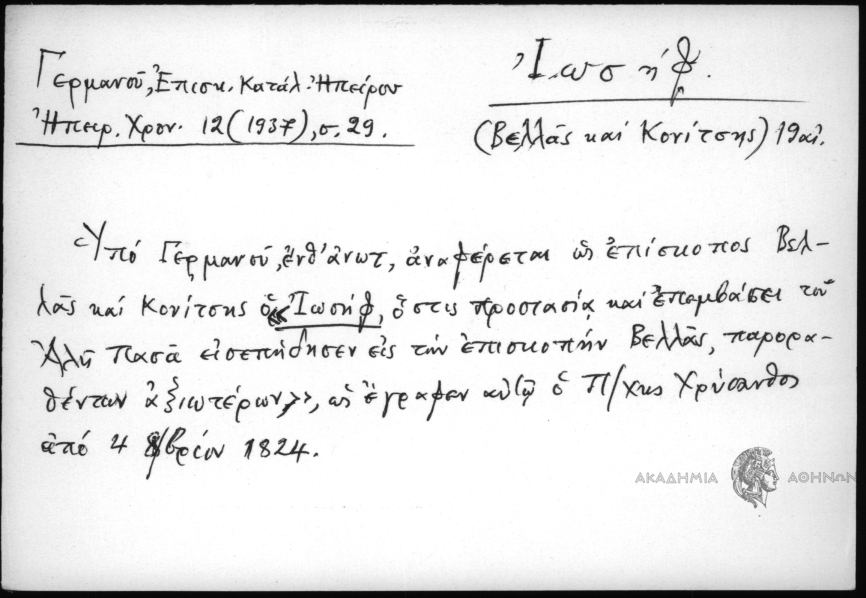 Γερμανοῦ, Ἐπισκ. Κατάλ. Ἠπείρου
Ἠπειρ. Χρον. 12 (1937), σ. 29.
Ἰωσήφ.
(Βελλᾶς καί Κονίτσης) 19 αἰ.
Ὑπό Γερμανοῦ, ἐνθ' ἀνωτ, ἀναφέρεται ὡς ἐπίσκοπος Βελ-
λᾶς καί Κονίτσης ὁ «Ἰωσήφ, ὅστις προστασίᾳ καί ἐπεμβάσει τοῦ
Ἀλῆ Πασᾶ εἰσεπήδησεν εἰς τήν ἐπισκοπήν Βελλᾶς, παρορα-
θέντων ἀξιωτέρων», ὡς ἔγραφεν αὐτῷ ὁ Π/χης Χρύσανθος
ἀπό 4 8/βρίου 1824.
ΑΚΑΔΗΜΙΑ ΑΘΗΝΩΝ